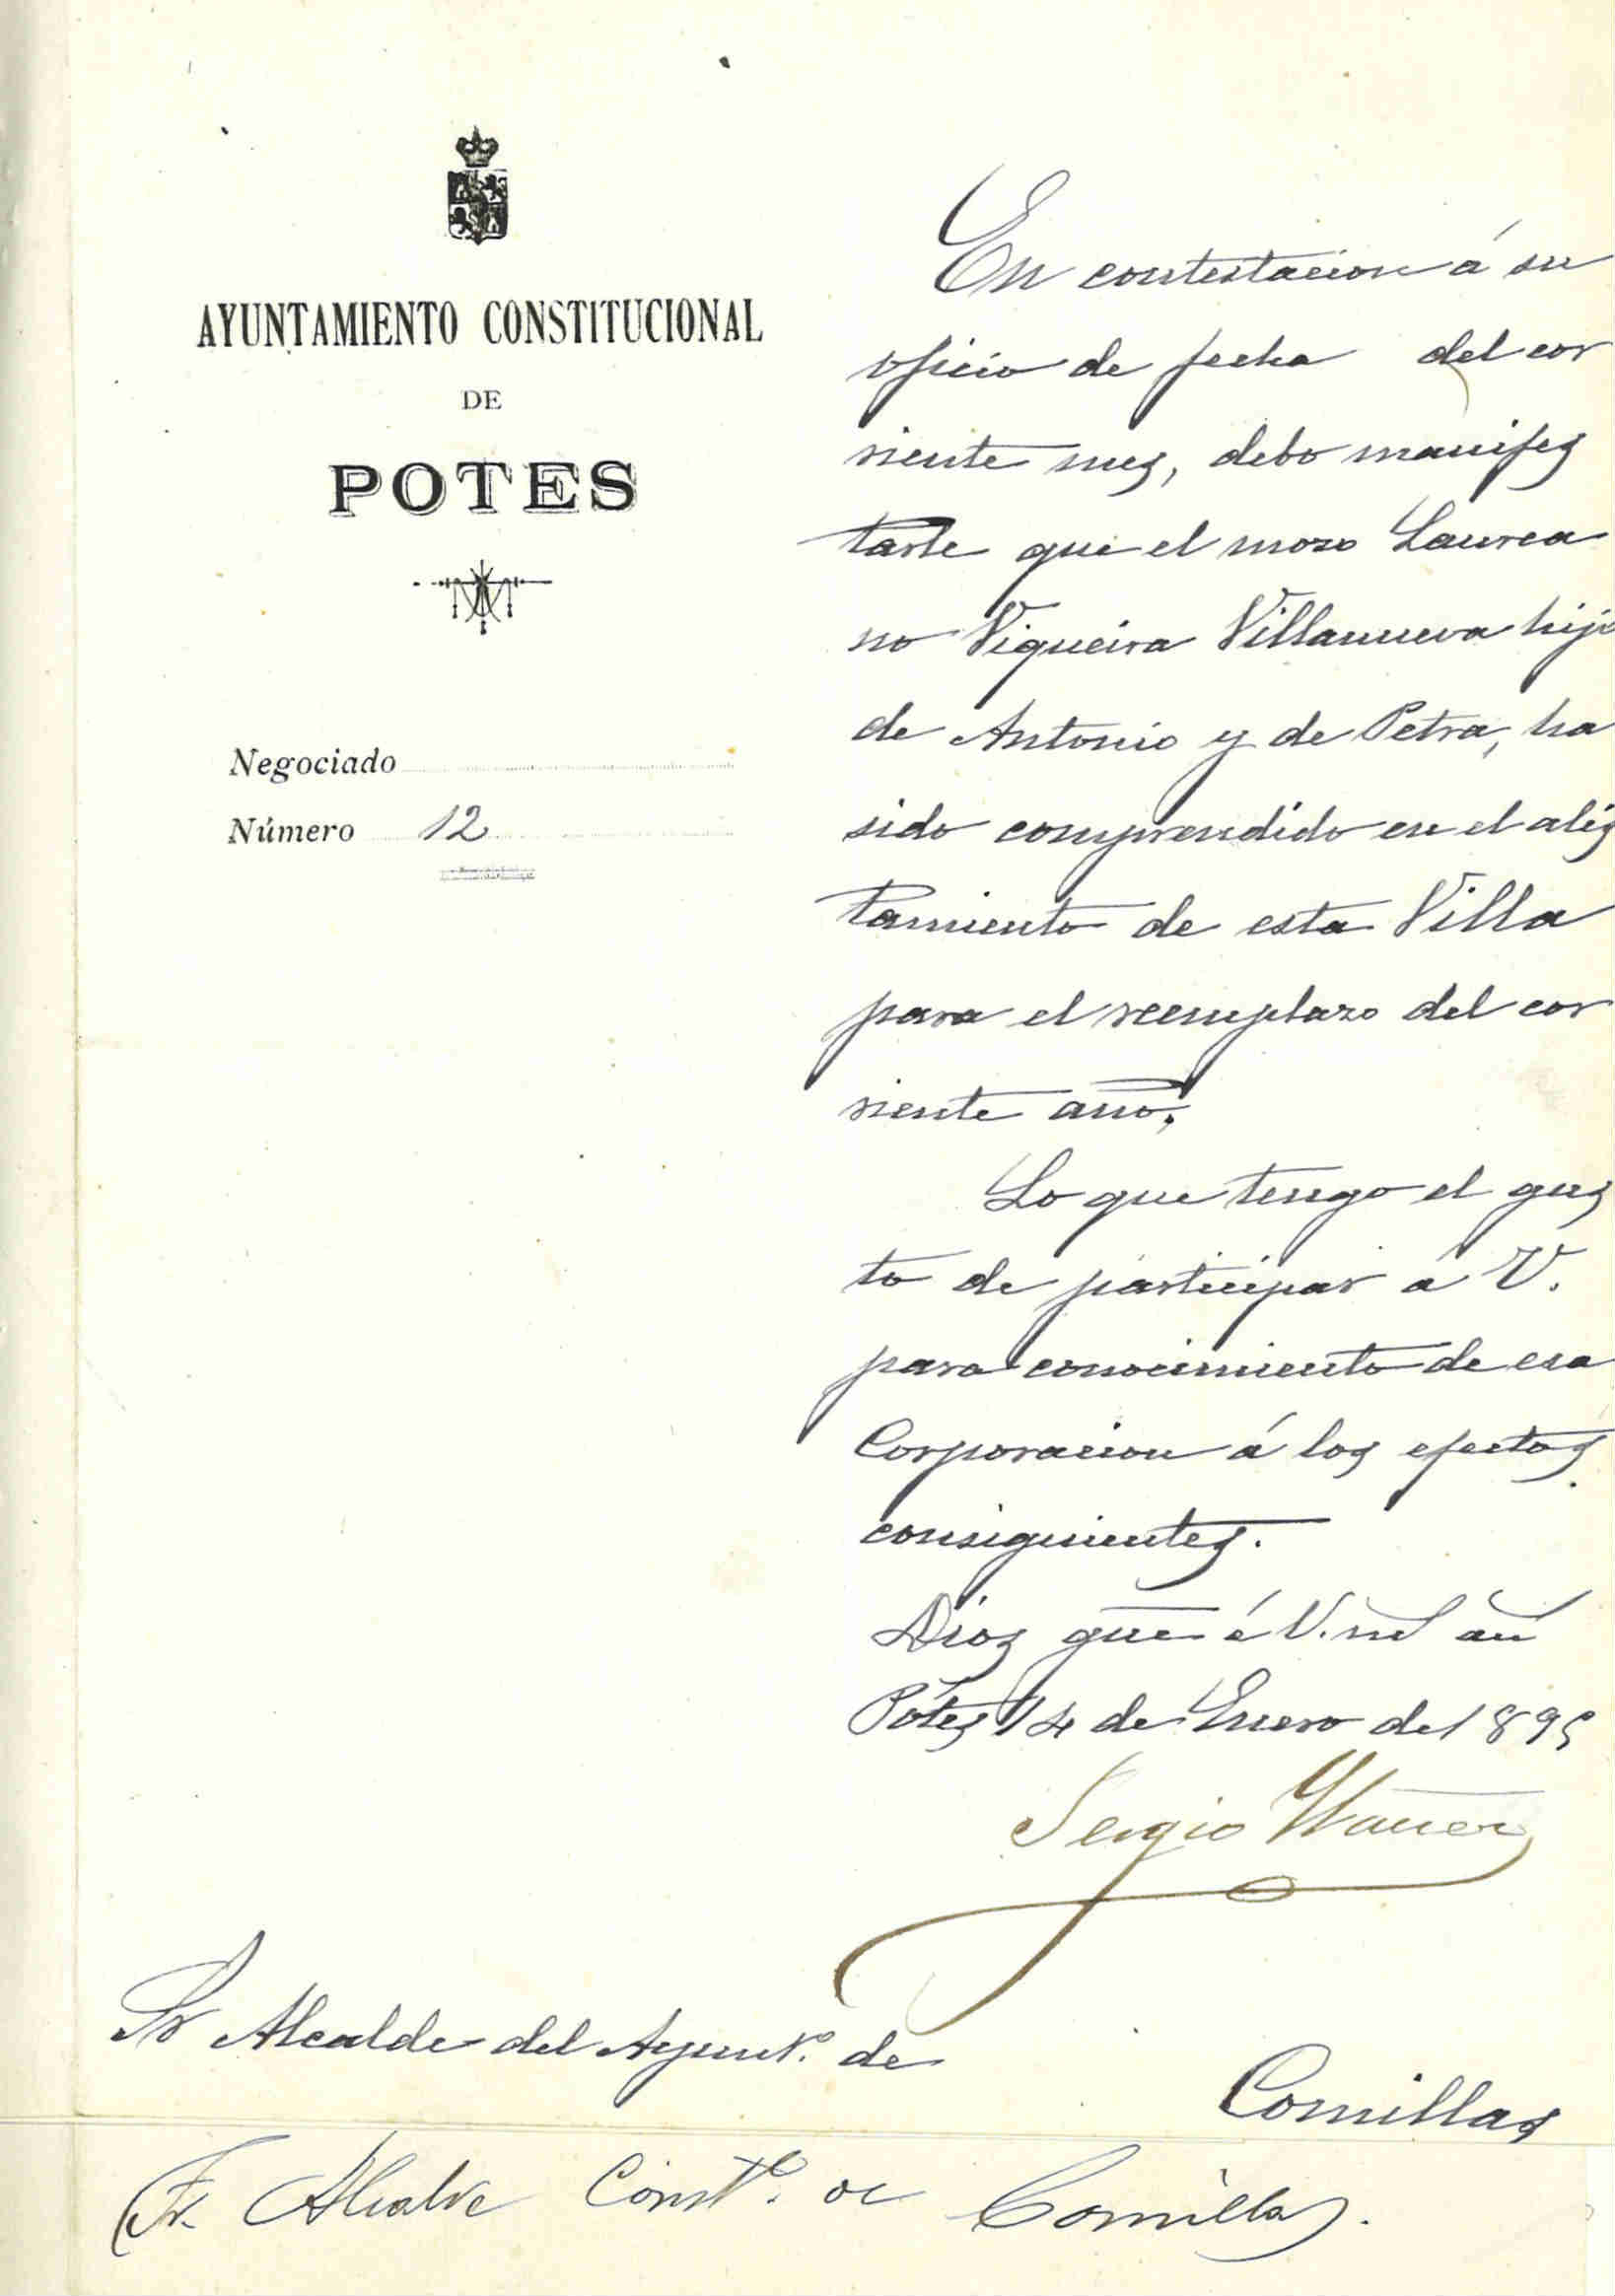 AYUNTAMIENTO CONSTITUCIONAL
DE
POTES
Negociado
Número 12
En contestacion á su
oficio de fecha del cor
riente mes, debo manifes
tarle que el mozo Laurea
no Viqueira Villanueva hijo
de Antonio y de Petra, ha
sido comprendido en el alis
tamiento de esta Villa
para el reemplazo del cor
riente año.
Lo que tengo el gus
to de participar á V.
para conocimiento de esa
Corporacion á los efectos
consiguientes.
Dios gue á V. m an
Potes 14 de Enero de 1895
Sergio
Sr Alcalde del Ayunt.º de
Comillas
Sr. Alcalde Const.l de Comillas.